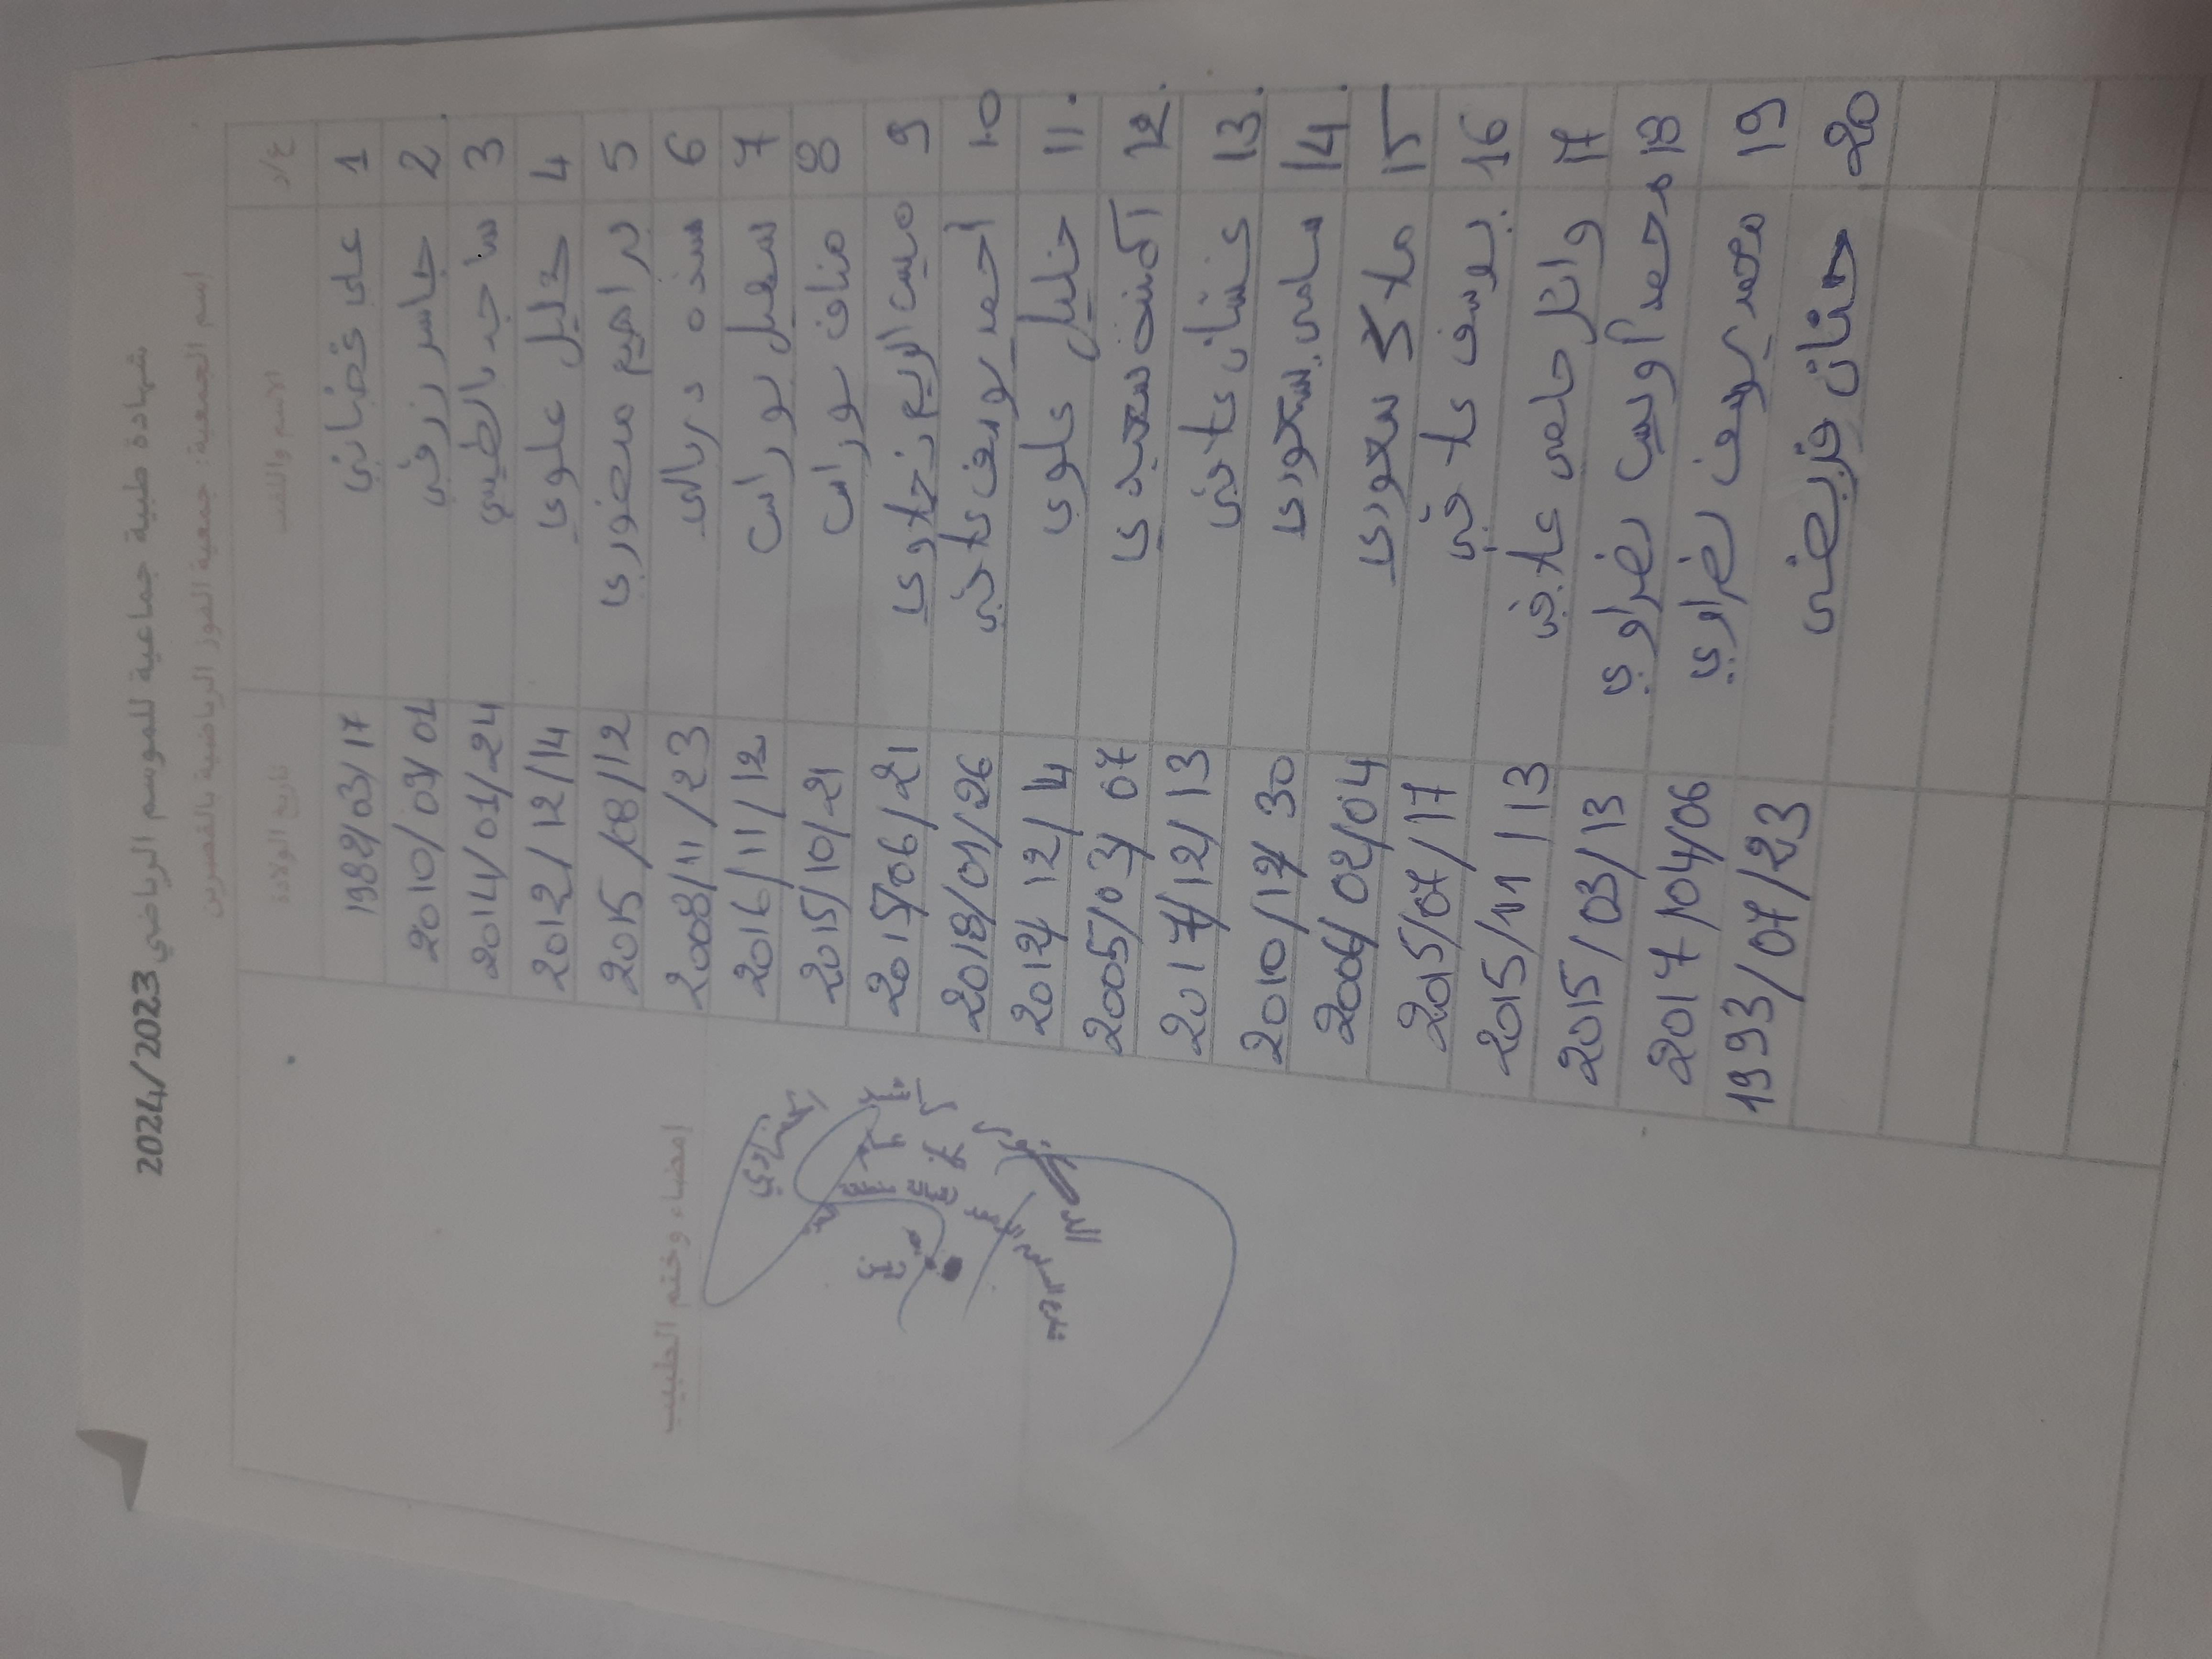 شهادة طبية جماعية للموسم الرياضي 2024/2023
إسم الجمعية: جمعية الفوز الرياضية بالقصرين
ع/د الاسم واللقب تاريخ الولادة
1 علي غضباني 1982/03/17
2 جاسر رزقي 2010/03/01
3 ساجد بالطيبي 2014/01/24
4 خليل علوي 2012/12/14
5 براهيم منصوري 2015/08/12
6 سندة دربالي 2008/11/23
7 سهيل بوراس 2016/11/12
8 مناف بوراس 2015/10/21
9 ميس الريم نجلاوي 2015/06/21
10 أحمد يوسف عافي 2018/01/26
11. خليل علوي 2012/12/14
12. آمنة سعيدي 2005/03/07
13. غسان عافي 2017/12/13
14. سحوري 2010/12/30
15 سحوري 2006/02/04
16 يوسف عافي 2015/07/17
17 وائل عافي 2015/11/13
18 محمد أويس نصراوي 2015/03/13
19 محمد نصراوي 2017/04/06
20 حنان قريضي 1993/07/23
إمضاء وختم الطبيب